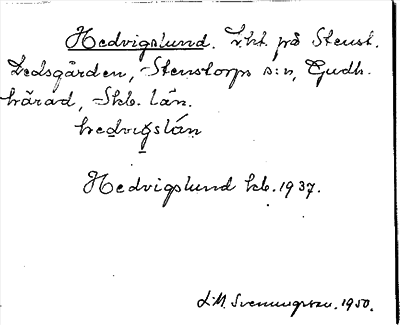 Hedvigslund. Lht. på Stenst.
Dedsgården, Stenstorps s:n, Gudh.
härad, Skb. län.
hedvigslún
Hedvigslund kb. 1937.
L.M. Svenungsson. 1950.